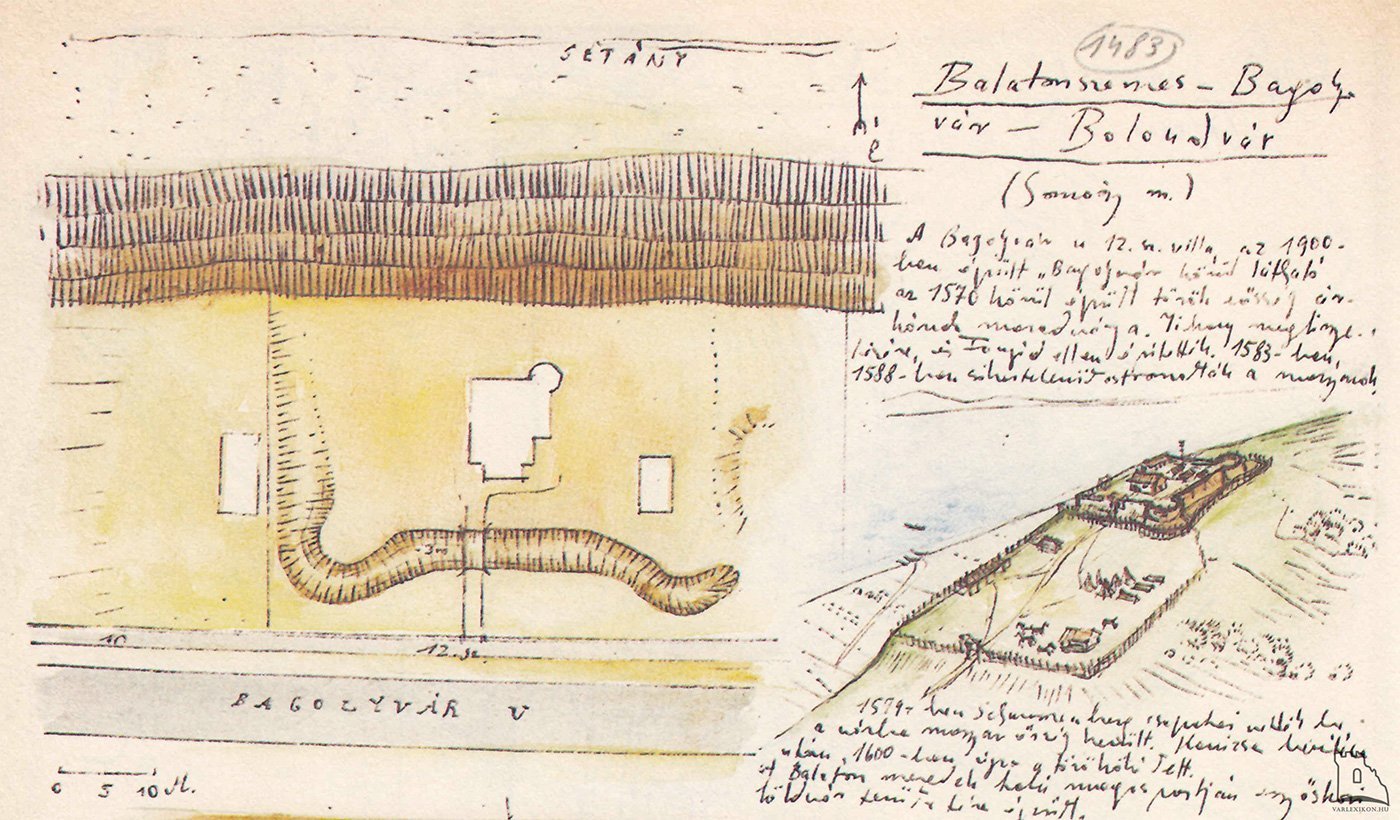 SÉTÁNY
1483
É
Balatonszemes – Bagoly
vár – Bolondvár
(Somogy m.)
A Bagolyvár u 12. sz. villa, az 1900-
ban épült „Bagolyvár körül látható
az 1570 körül épült török erősség ár-
kának maradványa. Tihany megfigye-
lésére, és Fonyód ellen építették. 1583-ban,
1588-ban sikertelenül ostromolták a magyarok.
-3m
10
12. sz.
BAGOLYVÁR U
0 5 10 M.
ben Schwarzenberg csapatai
a várba magyar őrség került. Kanizsa
után, 1600-ban újra a törököké lett.
A Balaton meredek falú magas partján egy őskori
földvár területére épült.
VARLEXIKON.HU